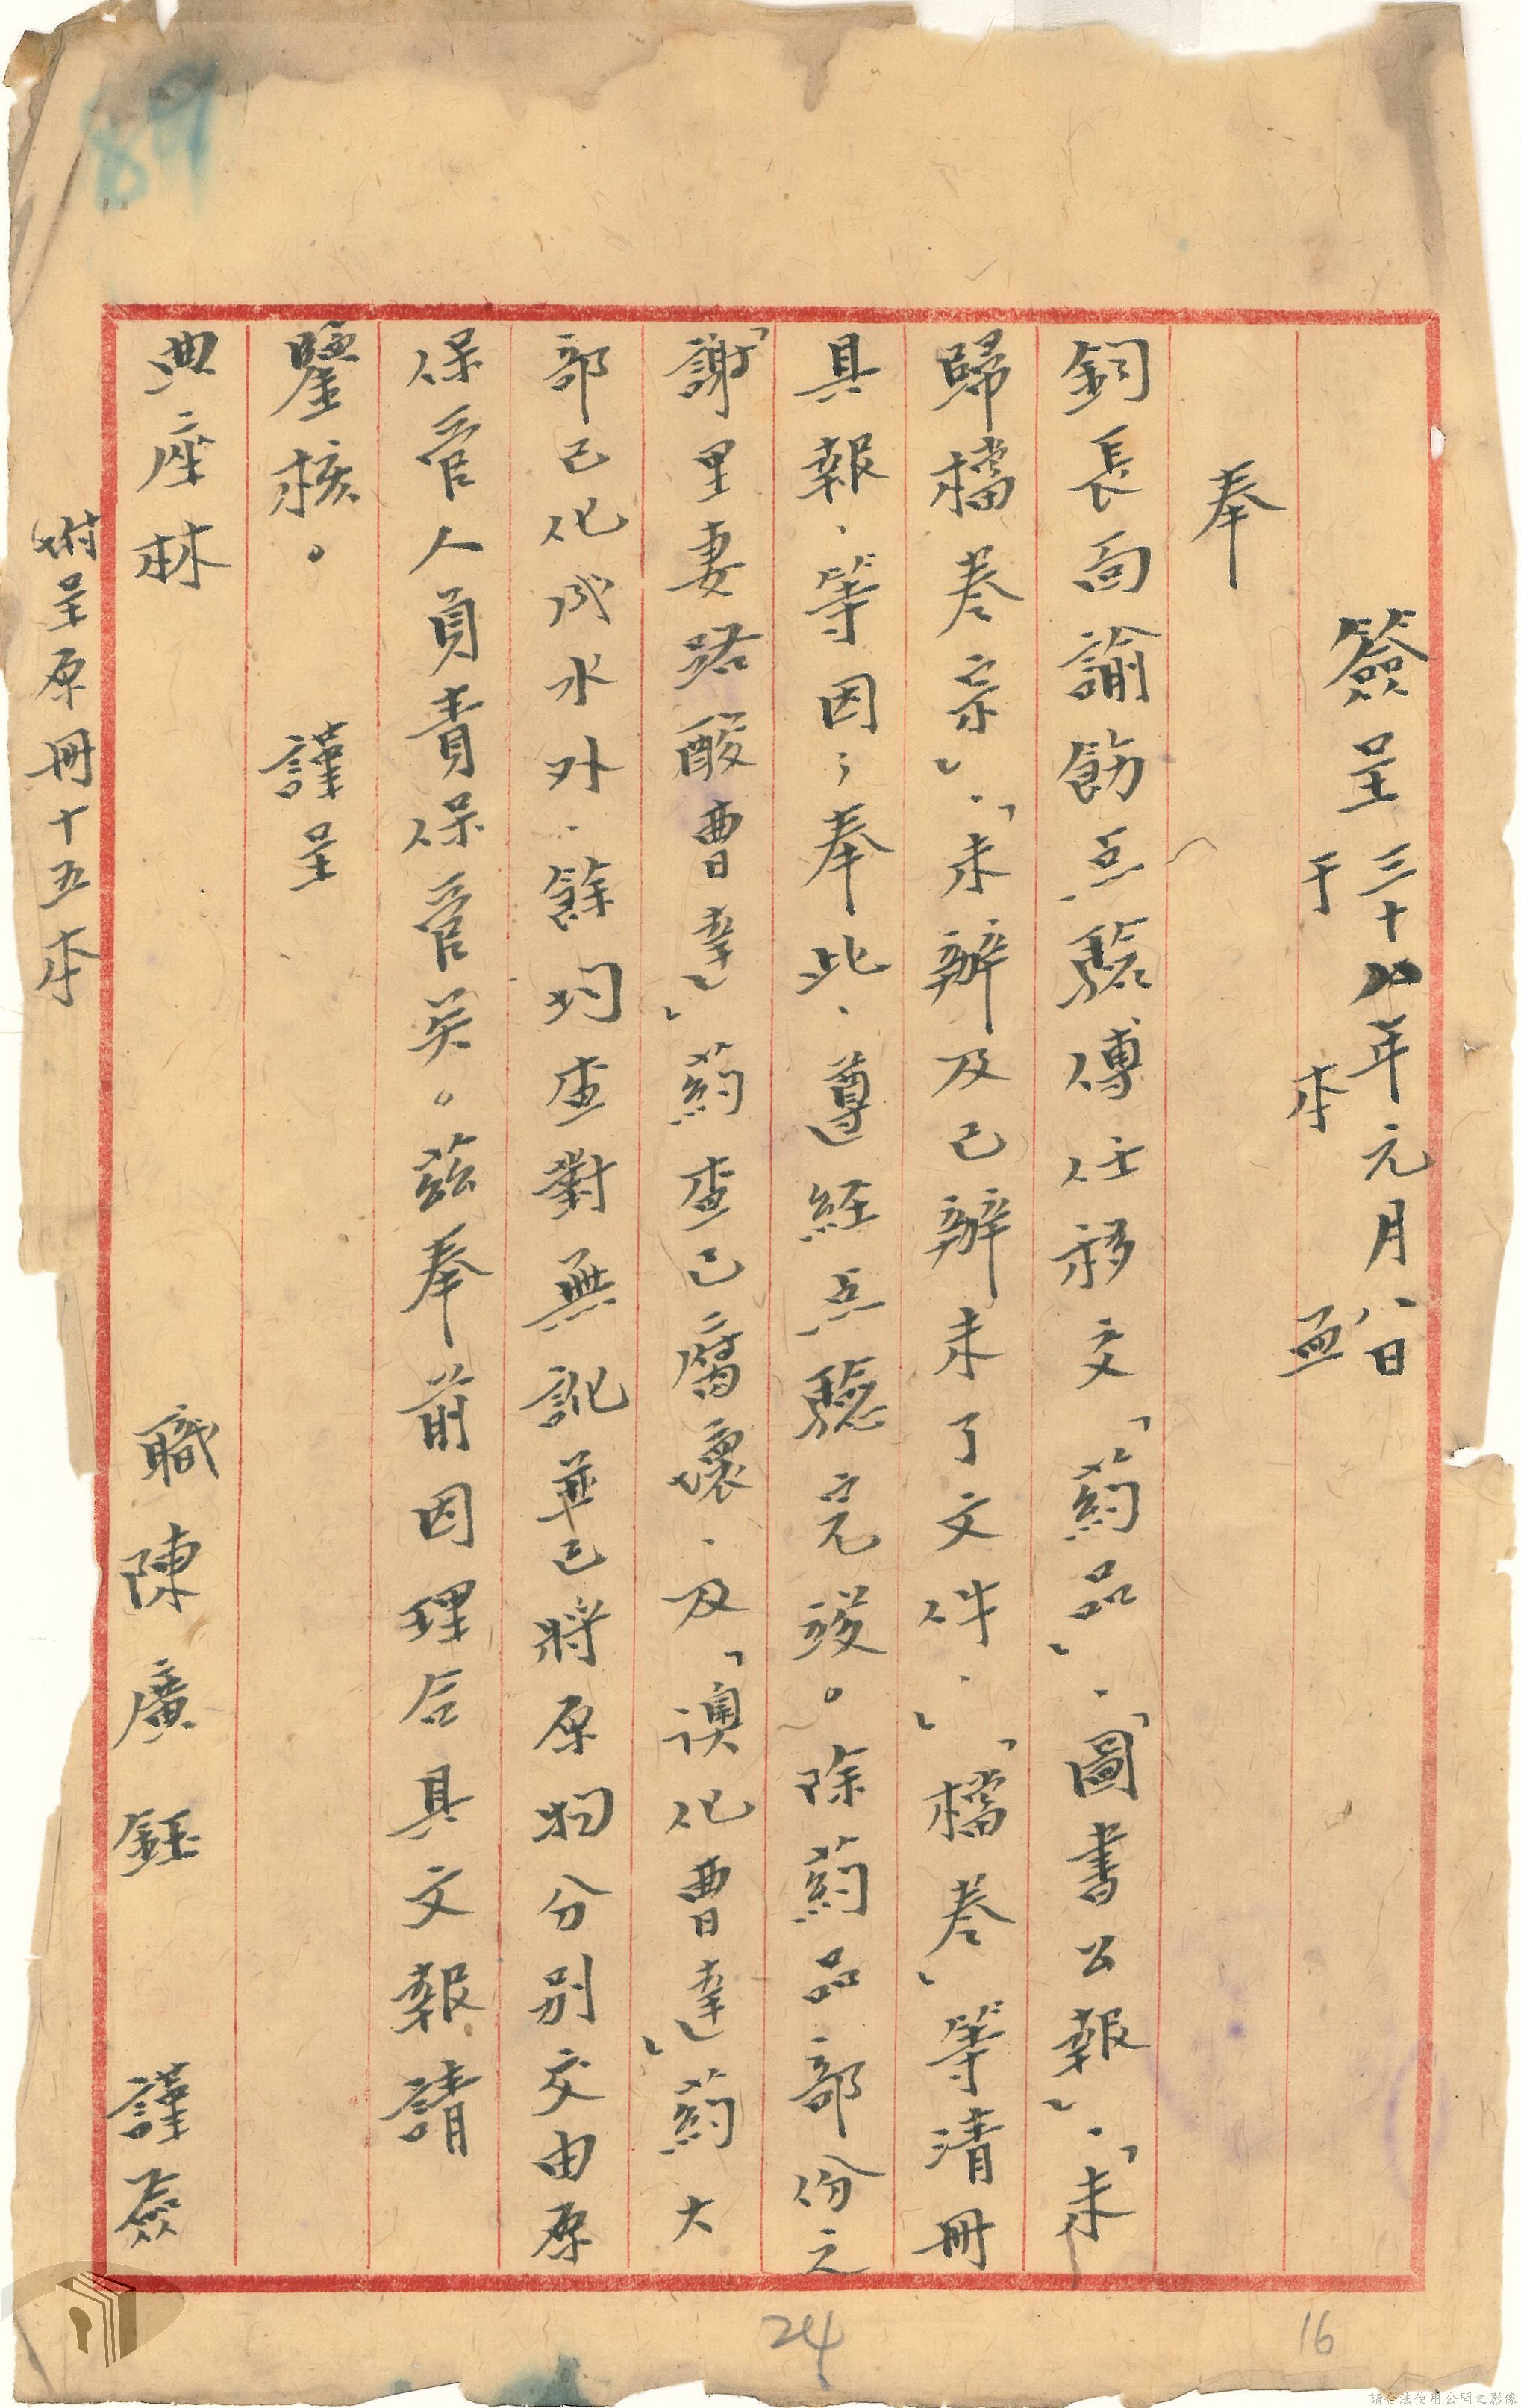 簽呈 三十八年元月八日
于 本 監
奉
飼長面諭飭点驗傅任移交「葯品」、「圖書公報」、「未
歸檔卷宗」、「未辦及已辦未了文件、」「檔卷」等清冊
具報、等因；奉此、遵經点驗完竣。除葯品部份之
「謝里妻路酸曹達」葯查已腐壞、及「澳化曹達」葯大
部已化成水外、餘均查對無訛並已將原物分別交由原
保管人員責保管矣。茲奉前因理合具文報請
鑒核。 謹呈
典座林
職陳廣鈺 謹簽
附呈原冊十五本
89
24
16
請合法使用公開之影像